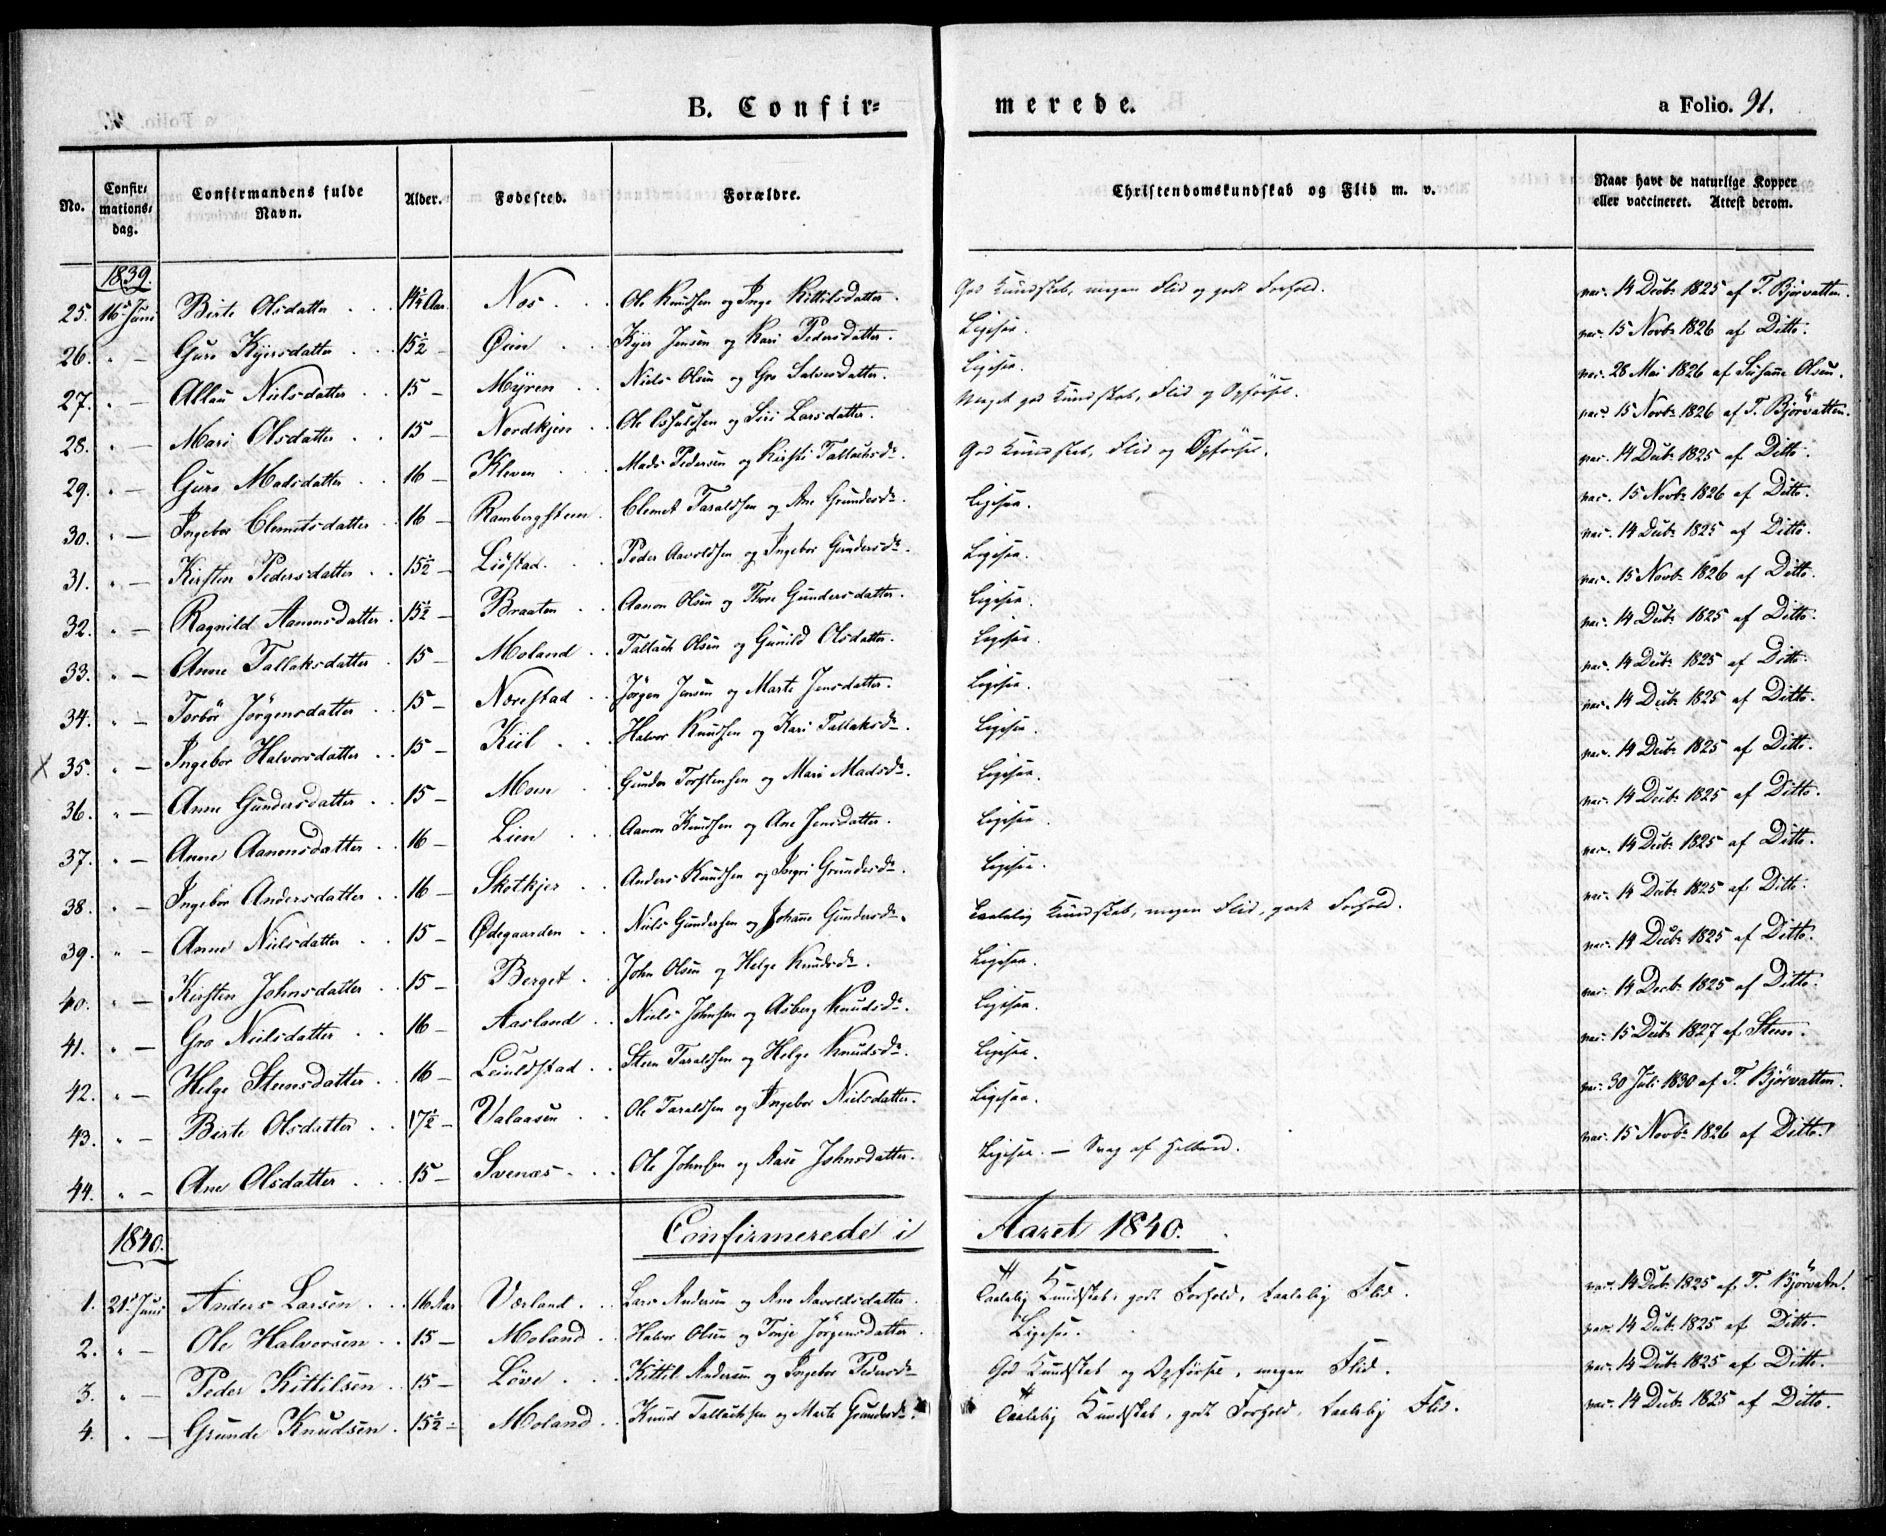 B. Confir= merede. a Folio. 91.
No. Confir=mations=dag. Confirmandens fulde Navn. Alder. Fødested. Forældre. Christendomskundskab og Flid m. v. Naar havt de naturlige Kopper eller vaccineret. Attest derom.
1839.
25. 16d Juni Birte Olsdatter Aar. Næs Ole Knudsen og Inge Kittilsdatter. God Kundskab, megen Flid og godt Forhold. vac. 14 Decb: 1825 af T. Bjørvatten.
26. " — Guro Kyersdatter 15½ — Øien Kyer Jensen og Kari Pedersdatter. Ligesaa. vac. 15 Novb: 1826 af Ditto.
27. " — Allau Nielsdatter 15 — Myren Niels Olsen og Gro Salvesdatter. Ligesaa. vac. 28 Mai 1826 af Susanne Olsen.
28. " — Mari Olsdatter 15 — Nordkjen Ole Osuldsen og Siri Larsdatter. Meget god Kundskab, Flid og Opførsel. vac. 15 Novb: 1826 af T. Bjørvatten.
29. " — Guro Madsdatter 16 — Kleven Mads Pedersen og Kirsti Tallachsdr. God Kundskab, Flid og Opførsel. vac. 14 Decb: 1825 af Ditto.
30. " — Ingebor Clemetsdatter 16 — Rambergsteen Clemet Taraldsen og Ane Grundesdr. Ligesaa. vac. 15 Novb: 1826 af Ditto.
31. " — Kirsten Pedersdatter 15½ — Liøstad Peder Aavoldsen og Ingebor Gundersdr. Ligesaa. vac. 14 Decb: 1825 af Ditto.
32. " — Ragnild Aanonsdatter 15½ — Braaten Aanon Olsen og Thore Gundersdatter. Ligesaa. vac. 15 Novb: 1826 af Ditto.
33. " — Anne Tallaksdatter 15 — Moland Tallach Olsen og Gunild Olsdatter. Ligesaa. vac. 14 Decb: 1825 af Ditto.
34. " — Torbør Jørgensdatter 15 — Nærestad Jørgen Jensen og Marte Jensdatter. Ligesaa. vac. 14 Decb: 1825 af Ditto.
X 35. " — Ingebor Halvorsdatter 15 — Kiil Halvor Knudsen og Kari Tallaksdr. Ligesaa. vac. 14 Decb: 1825 af Ditto.
36. " — Anne Gundersdatter 15 — Moen Gunder Torstensen og Mari Madsdr. Ligesaa. vac. 14 Decb: 1825 af Ditto.
37. " — Anne Aanonsdatter 16 — Lien Aanon Knudsen og Ane Jensdatter. Ligesaa. vac. 14 Decb: 1825 af Ditto.
38. " — Ingebor Andersdatter 16 — Skotkjer Anders Knudsen og Ingri Grundesdr. Ligesaa. vac. 14 Decb: 1825 af Ditto.
39. " — Anne Nielsdatter 15 — Ødegaarden Niels Gundersen og Johanne Gundersdr. Taalelig Kundskab, megen Flid, godt Forhold. vac. 14 Decb: 1825 af Ditto.
40. " — Kirsten Johnsdatter 15 — Berget John Olsen og Helge Knudsdr. Ligesaa. vac. 14 Decb: 1825 af Ditto.
41. " — Gro Nielsdatter 16 — Aasland Niels Johnsen og Asberg Knudsdr. Ligesaa. vac. 14 Decb: 1825 af Ditto.
42. " — Helge Steensdatter 16 — Leiuldstad Steen Taraldsen og Helge Knudsdr. Ligesaa. vac. 15 Decb: 1827 af Steen.
43. " — Birte Olsdatter 17½ — Valaasen Ole Taraldsen og Ingebor Nielsdatter. Ligesaa. vac. 30 Juli 1830 af T. Bjørvatten.
44. " — Ane Olsdatter 15 — Svenæs Ole Johnsen og Aase Johnsdatter. Ligesaa. — Svag af Helbred. vac. 15 Novb: 1826 af Ditto.
1840. Confirmerede i Aaret 1840.
1. 21d Juni Anders Larsen 16 Aar Værland Lars Andersen og Ane Aavoldsdatter. Taalelig Kundskab, godt Forhold, taalelig Flid. vac. 14 Decb: 1825 af T. Bjørvatn.
2. " — Ole Halvorsen 15 — Moland Halvor Olsen og Tonje Jørgensdatter. Ligesaa. vac. 14 Decb: 1825 af Ditto.
3. " — Peder Kittilsen 15 — Løve Kittil Andersen og Ingebor Pedersdr. God Kundskab og Opførsel, megen Flid. vac. 14 Decb: 1825 af Ditto.
4. " — Grunde Knudsen 15½ — Moland Knud Tallachsen og Marte Grundesdr. Taalelig Kundskab, godt Forhold, taalelig Flid. vac. 14 Decb: 1825 af Ditto.